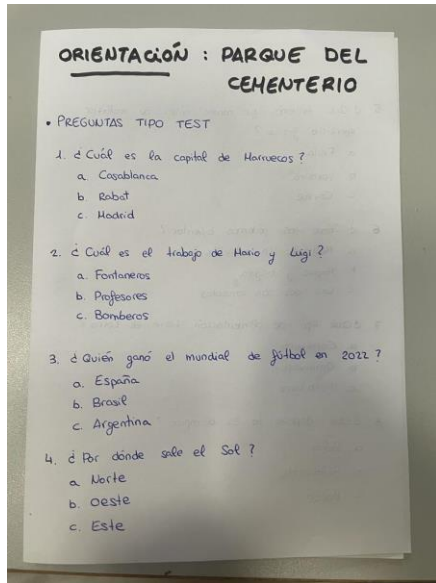 ORIENTACIÓN : PARQUE DEL
CEMENTERIO
• PREGUNTAS TIPO TEST
1. ¿Cuál es la capital de Marruecos?
a. Casablanca
b. Rabat
c. Madrid
2. ¿Cuál es el trabajo de Mario y Luigi?
a. Fontaneros
b. Profesores
c. Bomberos
3. ¿Quién ganó el mundial de fútbol en 2022?
a. España
b. Brasil
c. Argentina
4. ¿Por dónde sale el Sol?
a Norte
b. Oeste
c. Este